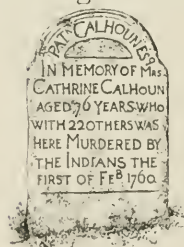 PATK CALHOUN ESQ.
IN MEMORY OF MRS.
CATHRINE CALHOUN
AGED 76 YEARS WHO
WITH 22 OTHERS WAS
HERE MURDERED BY
THE INDIANS THE
FIRST OF FEB 1760.